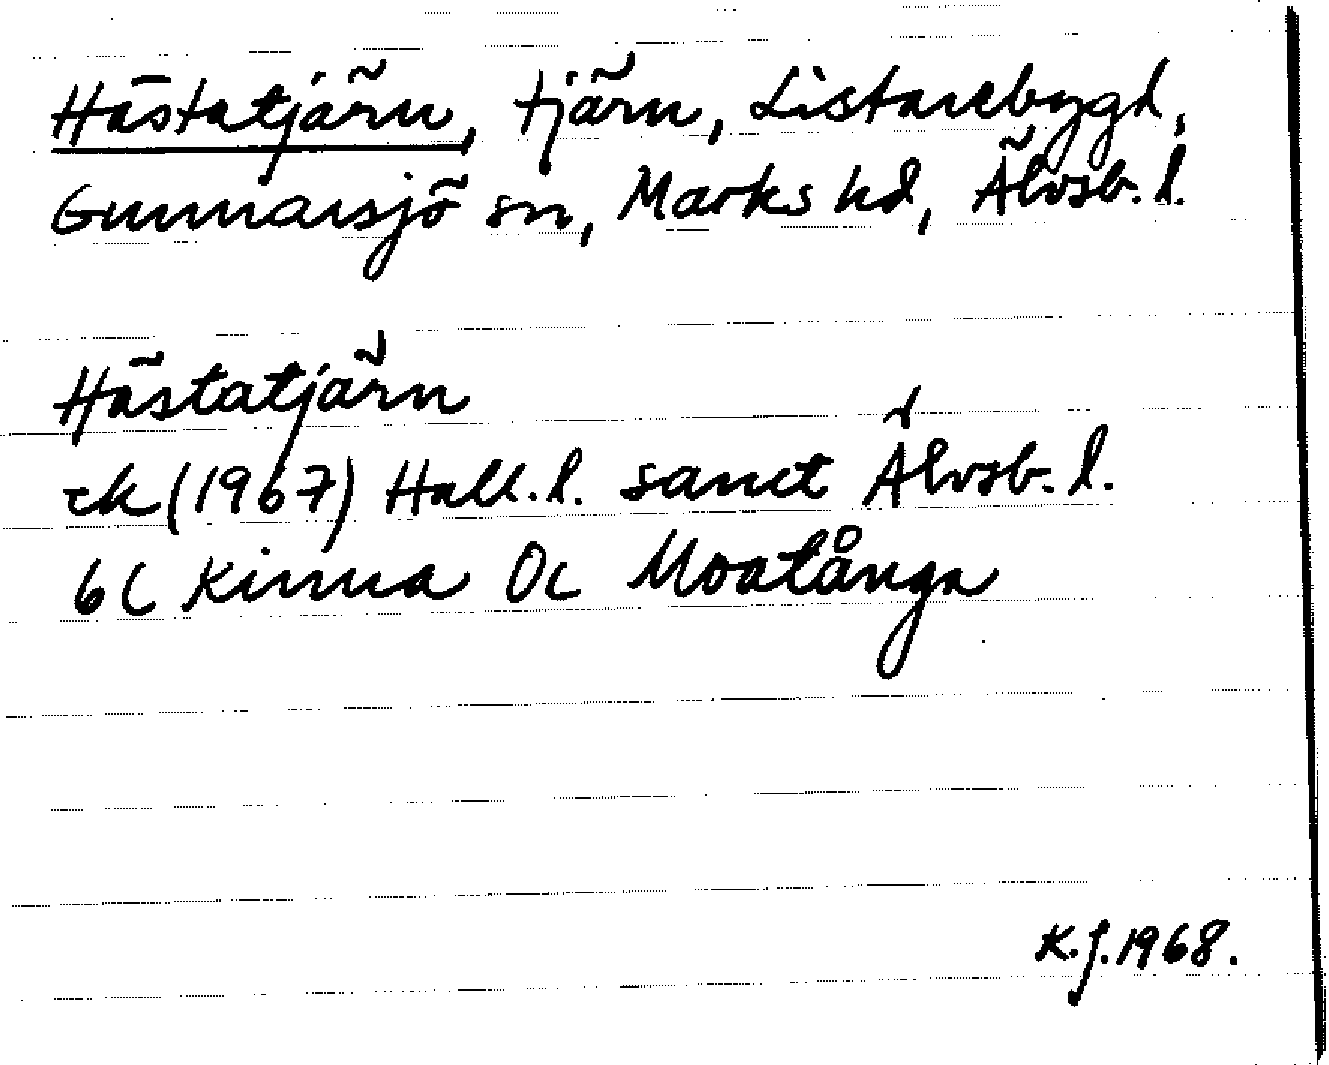 Hästatjärn, tjärn, Listarebygd,
Gunnarsjö sn, Marks hd, Älvsb. l.
Hästatjärn
ek (1967) Hall. l. samt Älvsb. l.
6C Kinna 0c Moatånga
K.J. 1968.